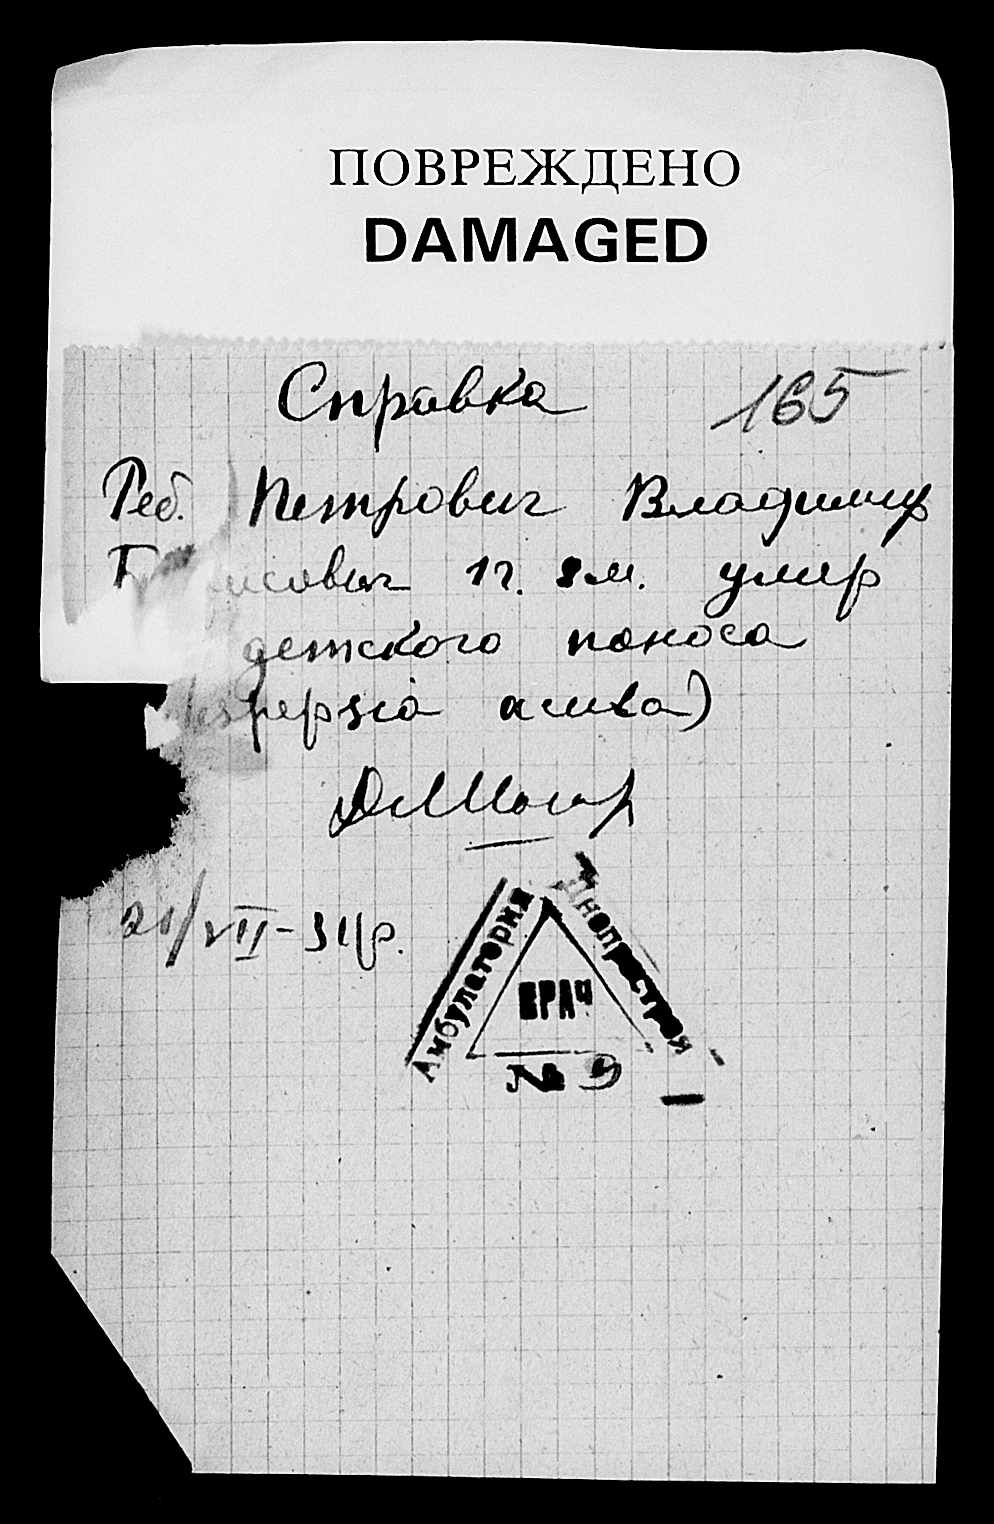 ПОВРЕЖДЕНО
DAMAGED
Справка 165
Реб. Петрович Владимир
1г. 8м. умер
детского поноса
acuta)
21/VII-31р.
Амбулатория Днопростроя
ВРАЧ
№ 9